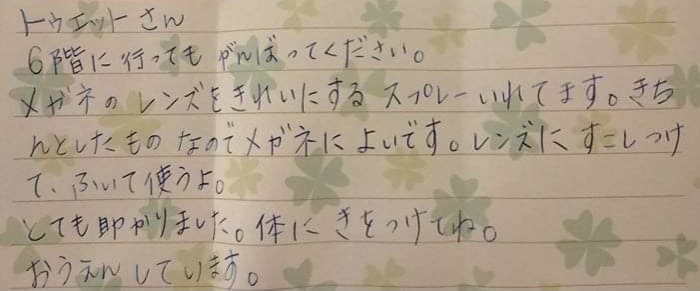 トゥェットさん
6階に行っても がんばってください。
メガネの レンズをきれいにする スプレーいれてます。きち
んとしたもの なのでメガネに よいです。レンズに すこしつけ
て、ふいて使うよ。
とても助かりました。体に きをつけてね。
おうえんしています。